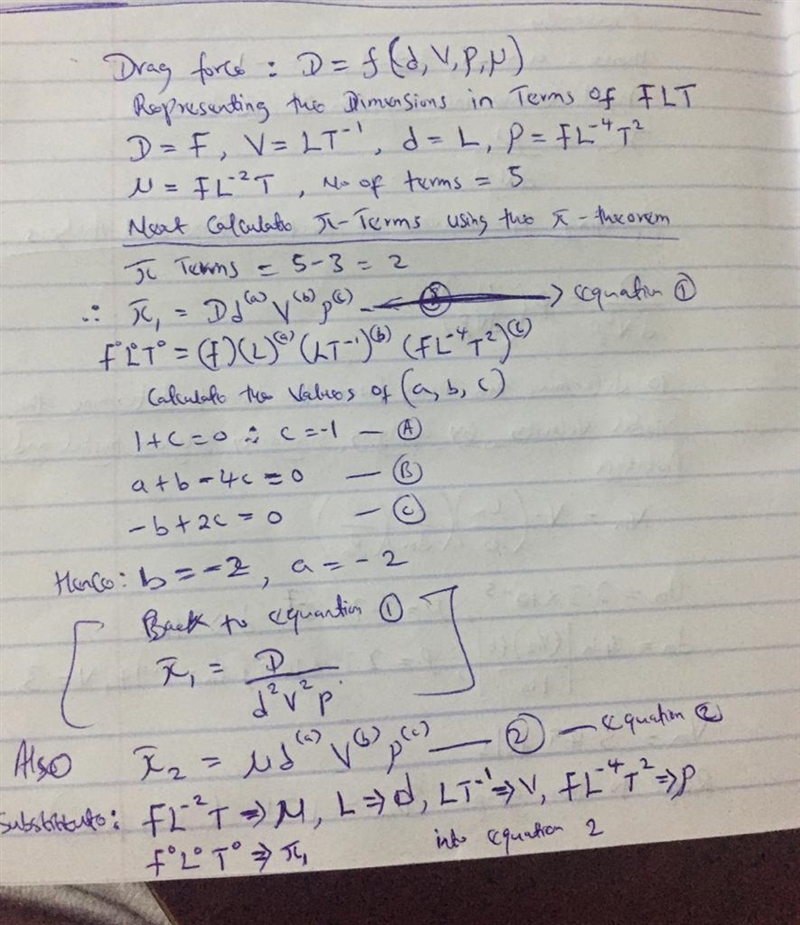 Drag force : D = f(d, V, ρ, μ)
Representing the Dimensions in Terms of FLT
D = F, V = LT⁻¹, d = L, ρ = FL⁻⁴T²
μ = FL⁻²T, No of terms = 5
Next Calculate π-Terms using the π-theorem
π Terms = 5-3 = 2
∴ π₁ = Dd⁽ᵃ⁾V⁽ᵇ⁾ρ⁽ᶜ⁾ → equation ①
F⁰L⁰T⁰ = (F)(L)⁽ᵃ⁾(LT⁻¹)⁽ᵇ⁾(FL⁻⁴T²)⁽ᶜ⁾
Calculate the Values of (a, b, c)
1+c=0 ∴ c=-1 — Ⓐ
a+b-4c=0 — Ⓑ
-b+2c=0 — Ⓒ
Hence: b=-2, a=-2
[Back to equation ①
π₁ = D/d²V²ρ]
Also π₂ = μd⁽ᵃ⁾V⁽ᵇ⁾ρ⁽ᶜ⁾ — ② — equation ②
Substitute: FL⁻²T ⇒ μ, L ⇒ d, LT⁻¹ ⇒ V, FL⁻⁴T² ⇒ ρ
F⁰L⁰T⁰ ⇒ π₁ into equation 2